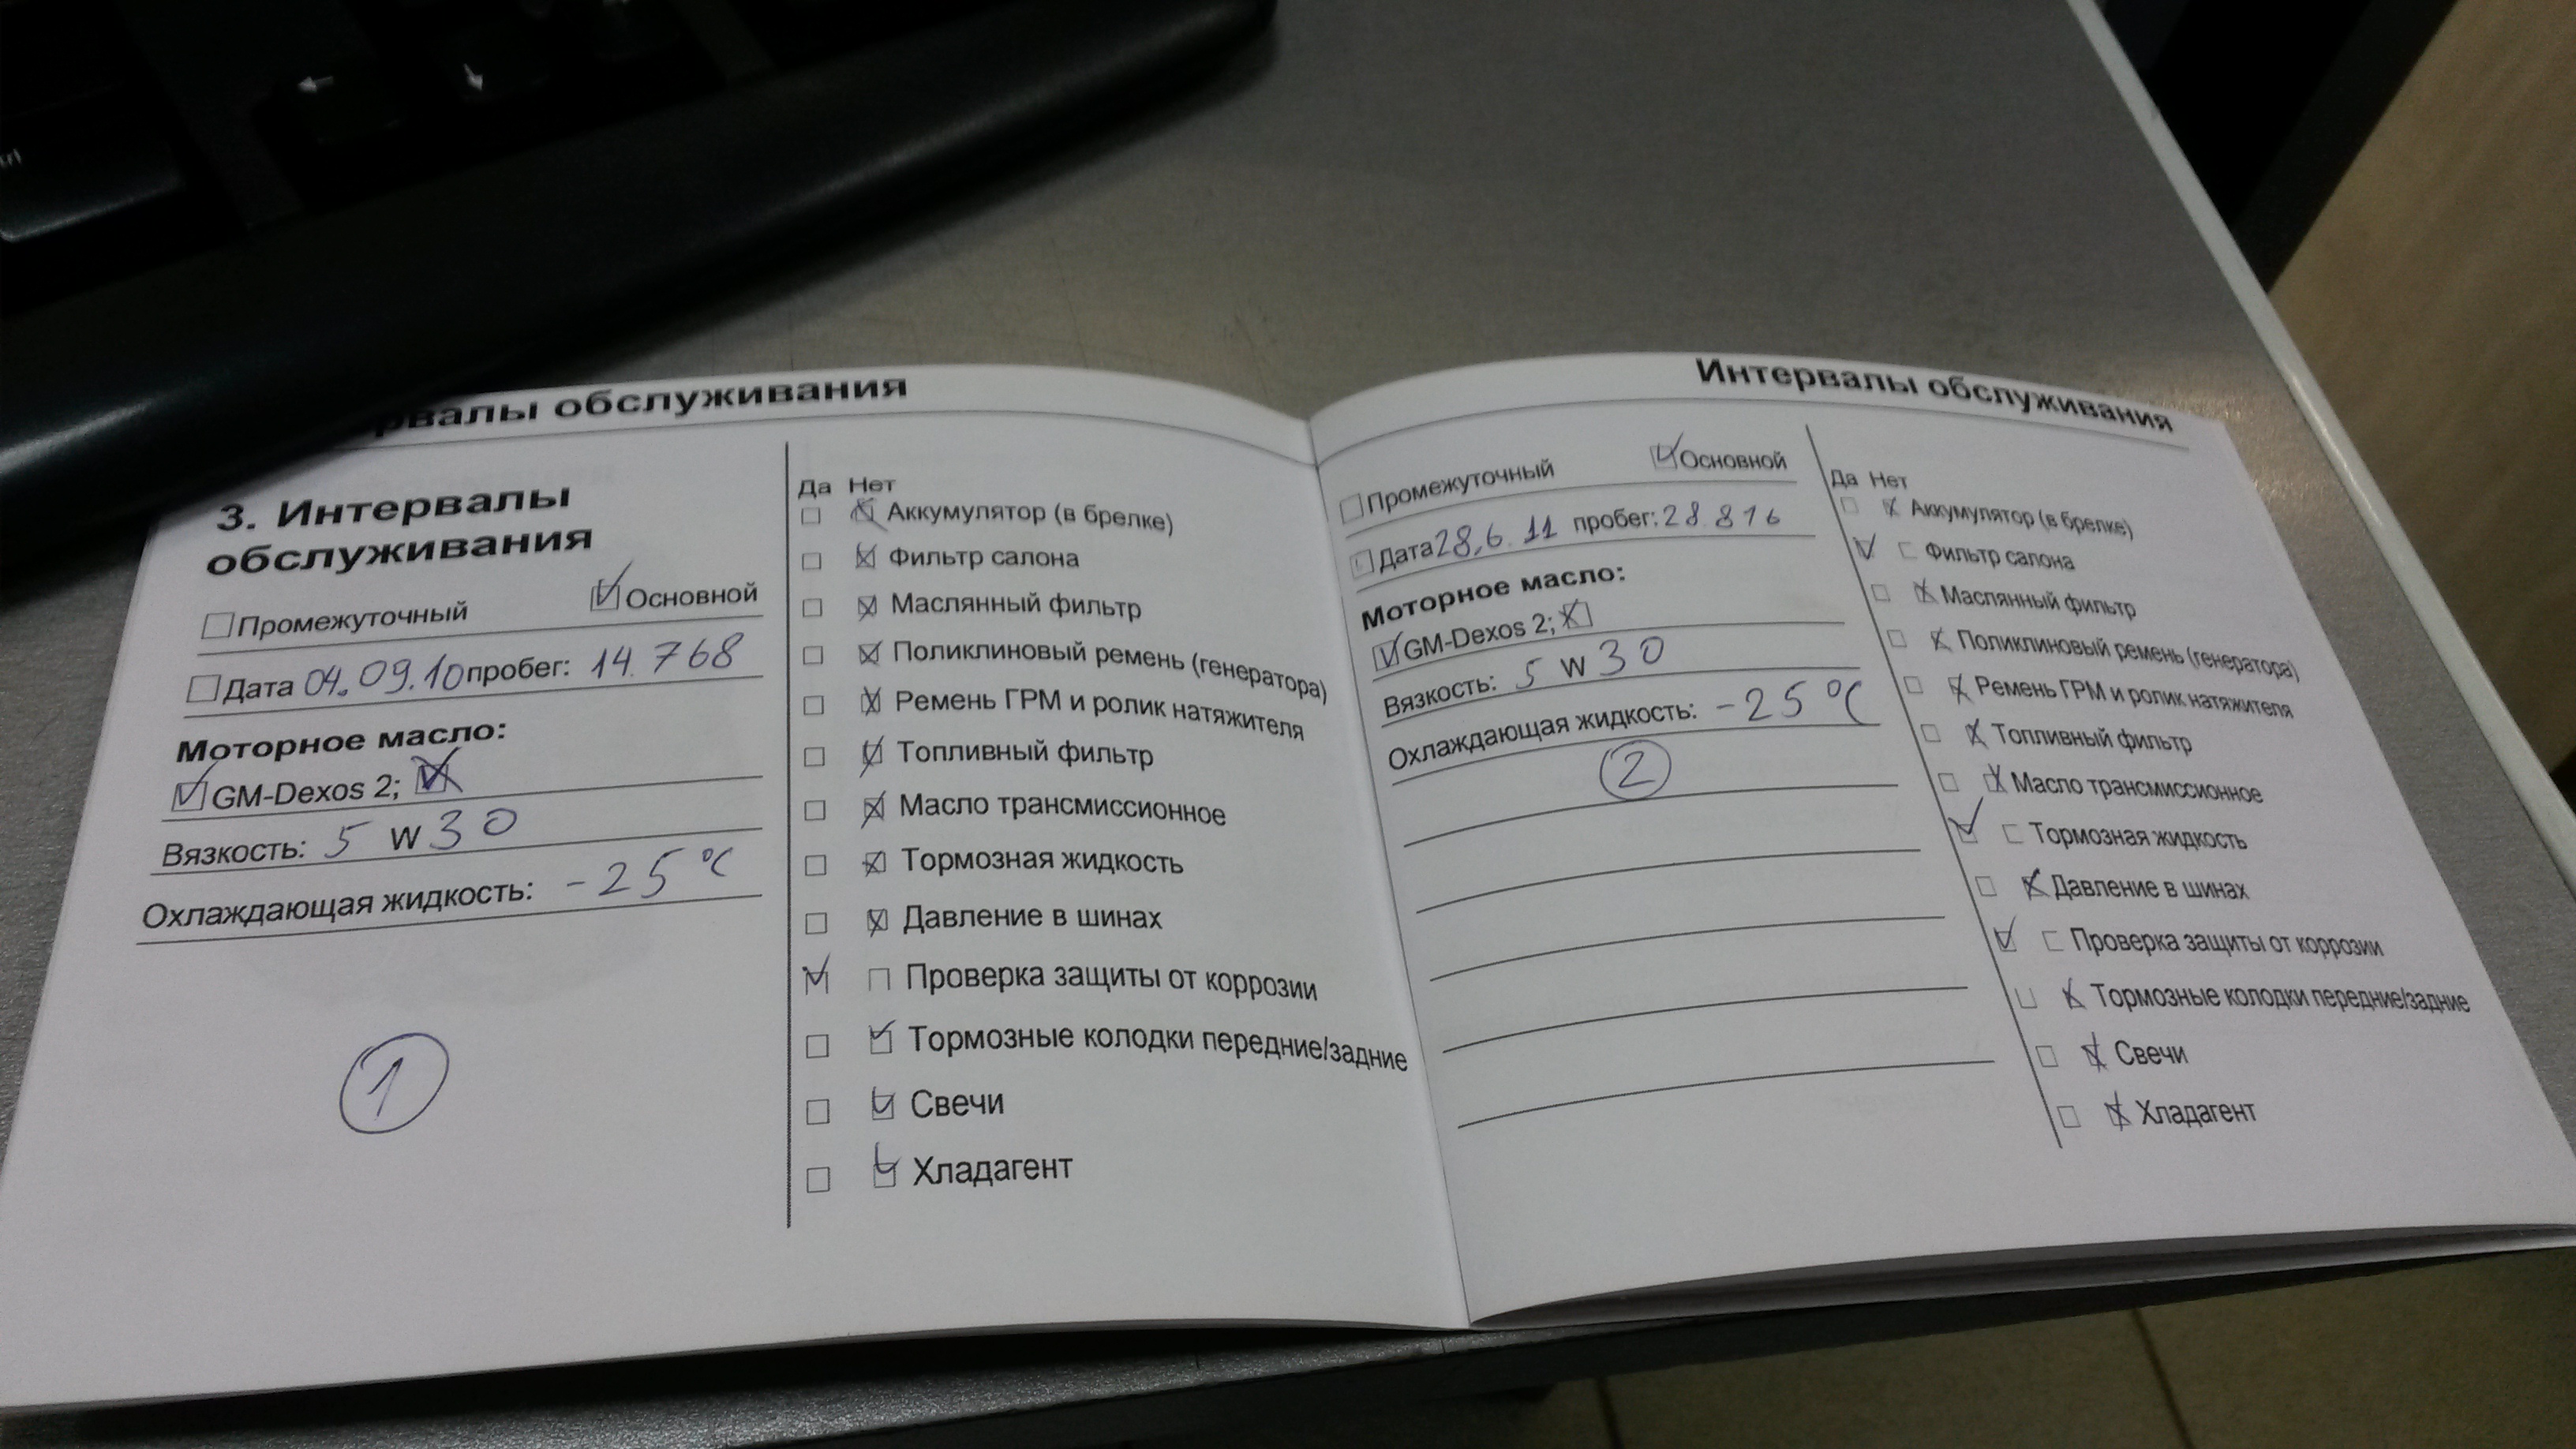 рвалы обслуживания
3. Интервалы
обслуживания
Промежуточный Основной
Дата 04.09.10 пробег: 14.768
Моторное масло:
GM-Dexos 2;
Вязкость: 5 W 30
Охлаждающая жидкость: -25°C
1
Да Нет
Аккумулятор (в брелке)
Фильтр салона
Маслянный фильтр
Поликлиновый ремень (генератора)
Ремень ГРМ и ролик натяжителя
Топливный фильтр
Масло трансмиссионное
Тормозная жидкость
Давление в шинах
Проверка защиты от коррозии
Тормозные колодки передние/задние
Свечи
Хладагент
Интервалы обслуживания
Промежуточный Основной
Дата 28,6.11 пробег: 28.816
Моторное масло:
GM-Dexos 2;
Вязкость: 5 W 30
Охлаждающая жидкость: -25°C
2
Да Нет
Аккумулятор (в брелке)
Фильтр салона
Маслянный фильтр
Поликлиновый ремень (генератора)
Ремень ГРМ и ролик натяжителя
Топливный фильтр
Масло трансмиссионное
Тормозная жидкость
Давление в шинах
Проверка защиты от коррозии
Тормозные колодки передние/задние
Свечи
Хладагент